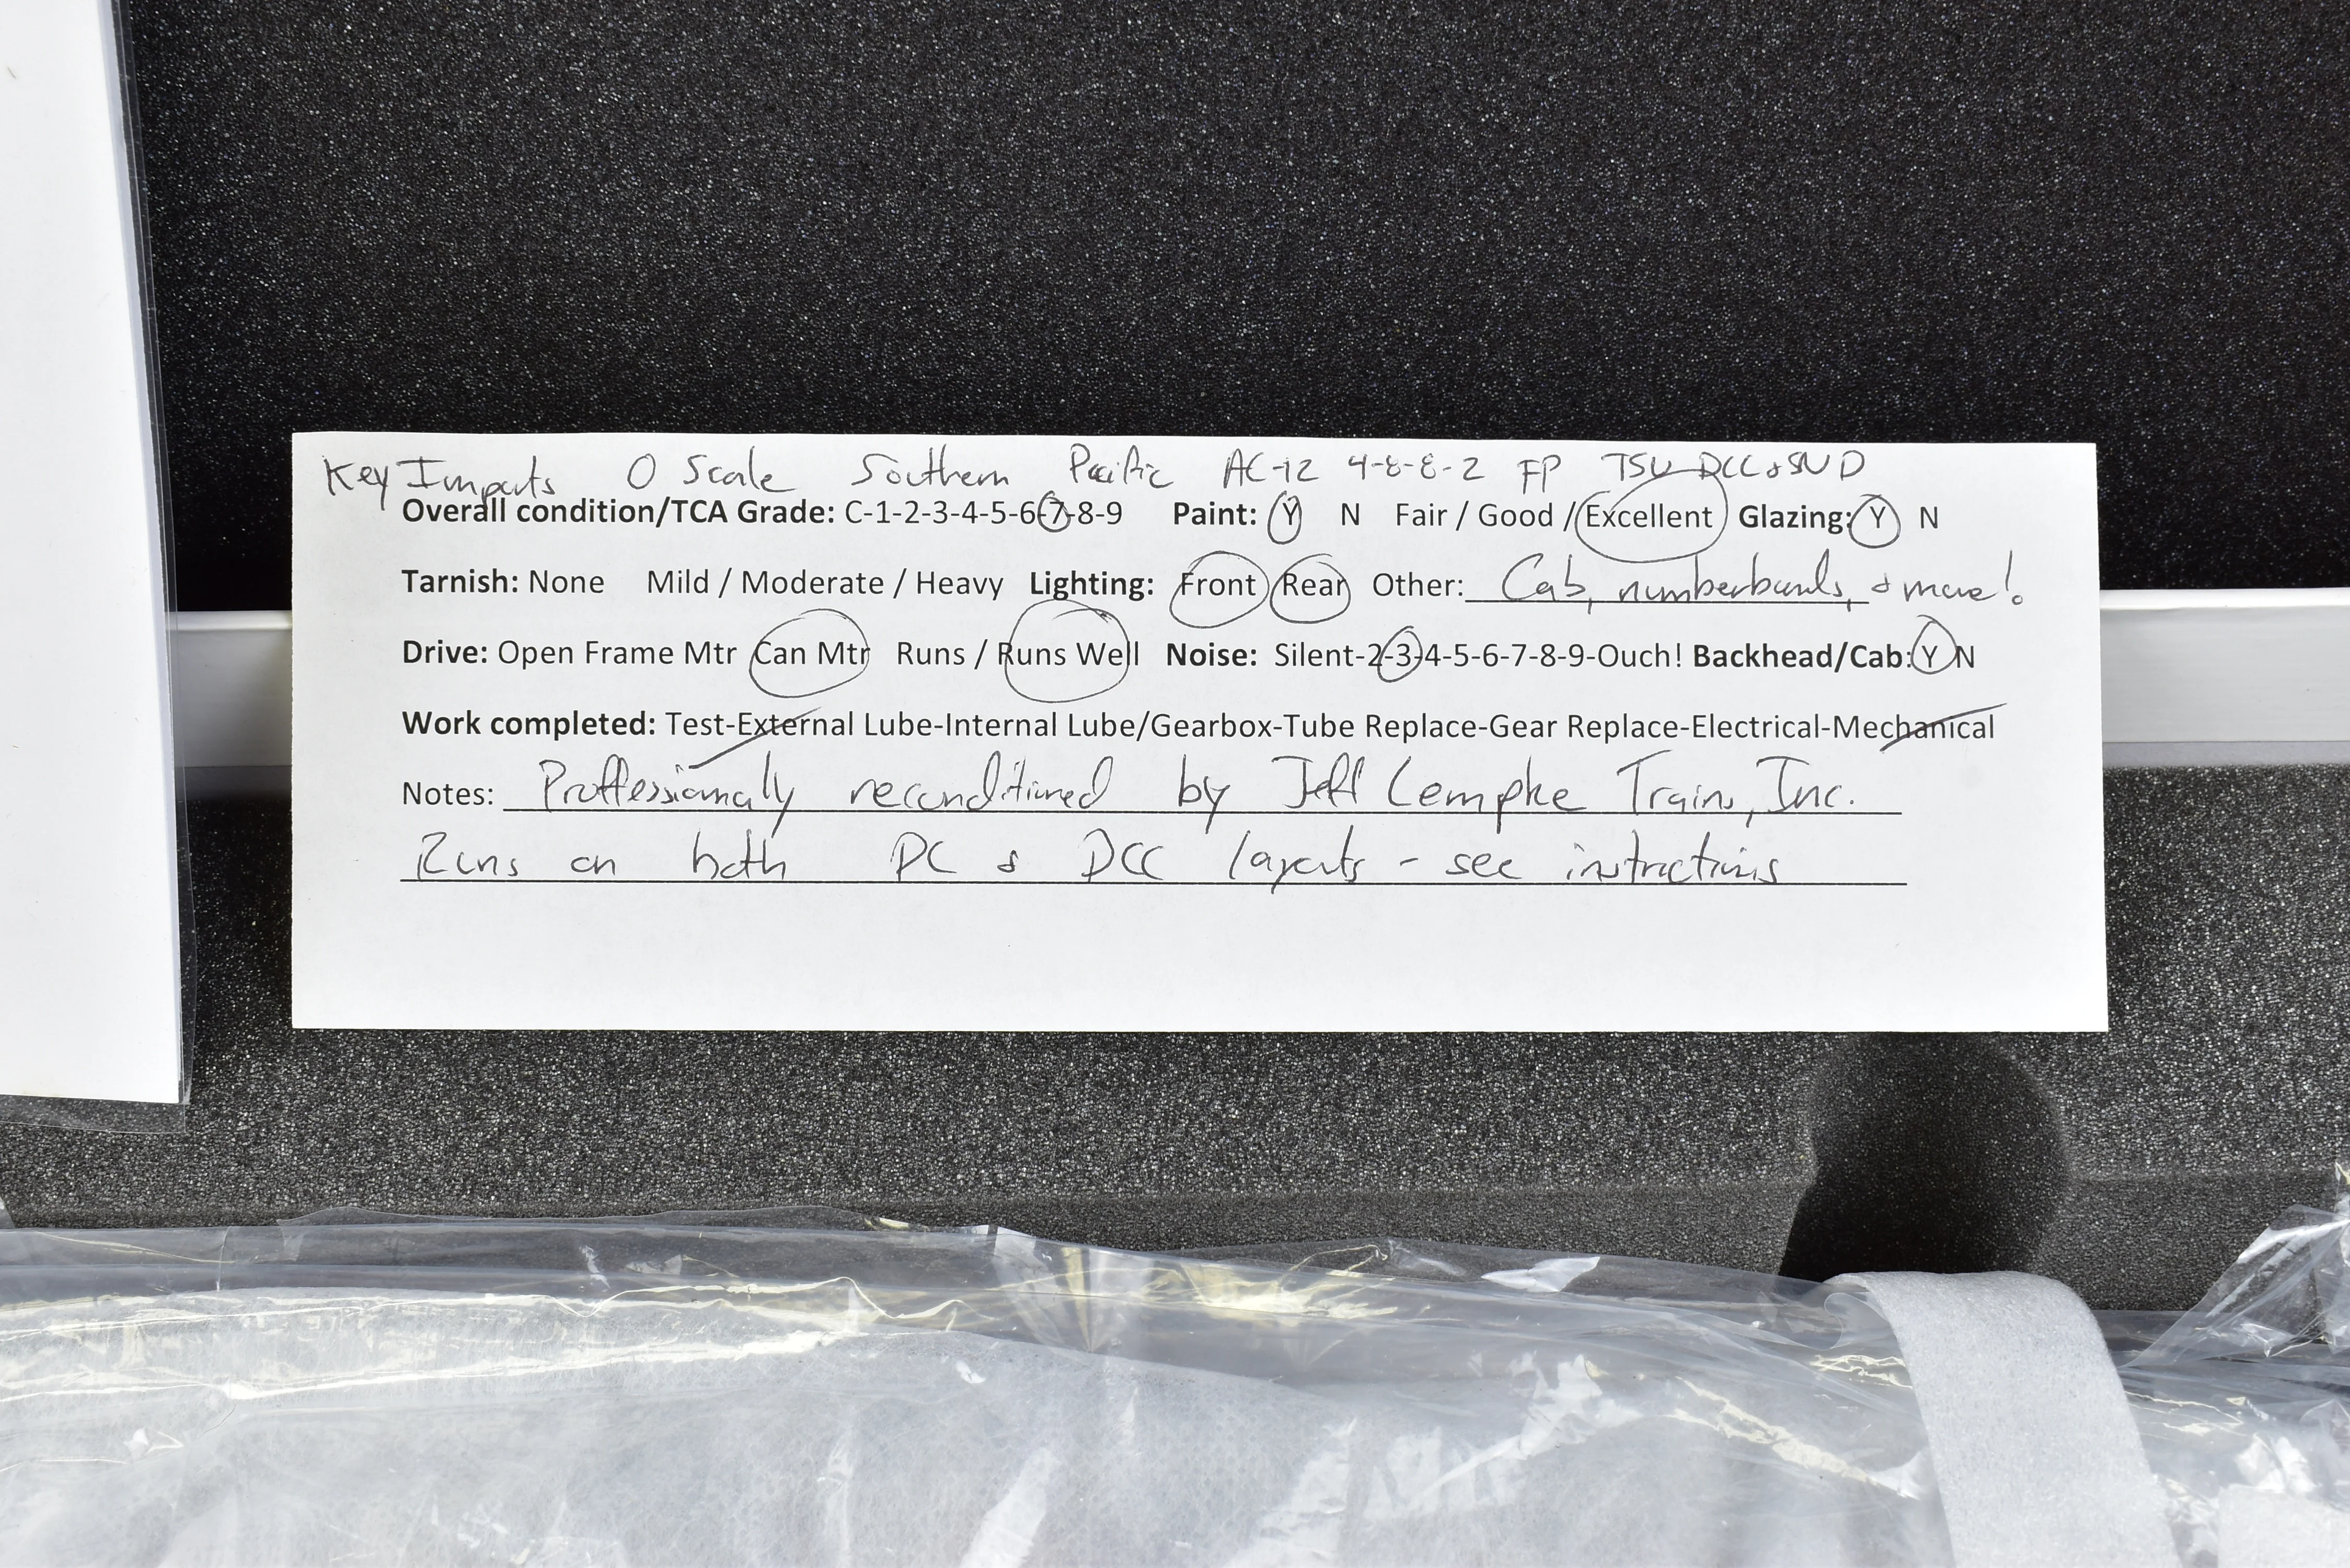 Key Imports O Scale Southern Pacific AC-12 4-8-8-2 FP TSU DCC & SND
Overall condition/TCA Grade: C-1-2-3-4-5-6-7-8-9 Paint: Y N Fair / Good / Excellent Glazing: Y N
Tarnish: None Mild / Moderate / Heavy Lighting: Front Rear Other: Cab, numberboards, & more!
Drive: Open Frame Mtr Can Mtr Runs / Runs Well Noise: Silent-2-3-4-5-6-7-8-9-Ouch! Backhead/Cab: Y N
Work completed: Test-External Lube-Internal Lube/Gearbox-Tube Replace-Gear Replace-Electrical-Mechanical
Notes: Proffessionally reconditioned by Jeff Lempke Trains, Inc.
Runs on both DC & DCC layouts - see instructions